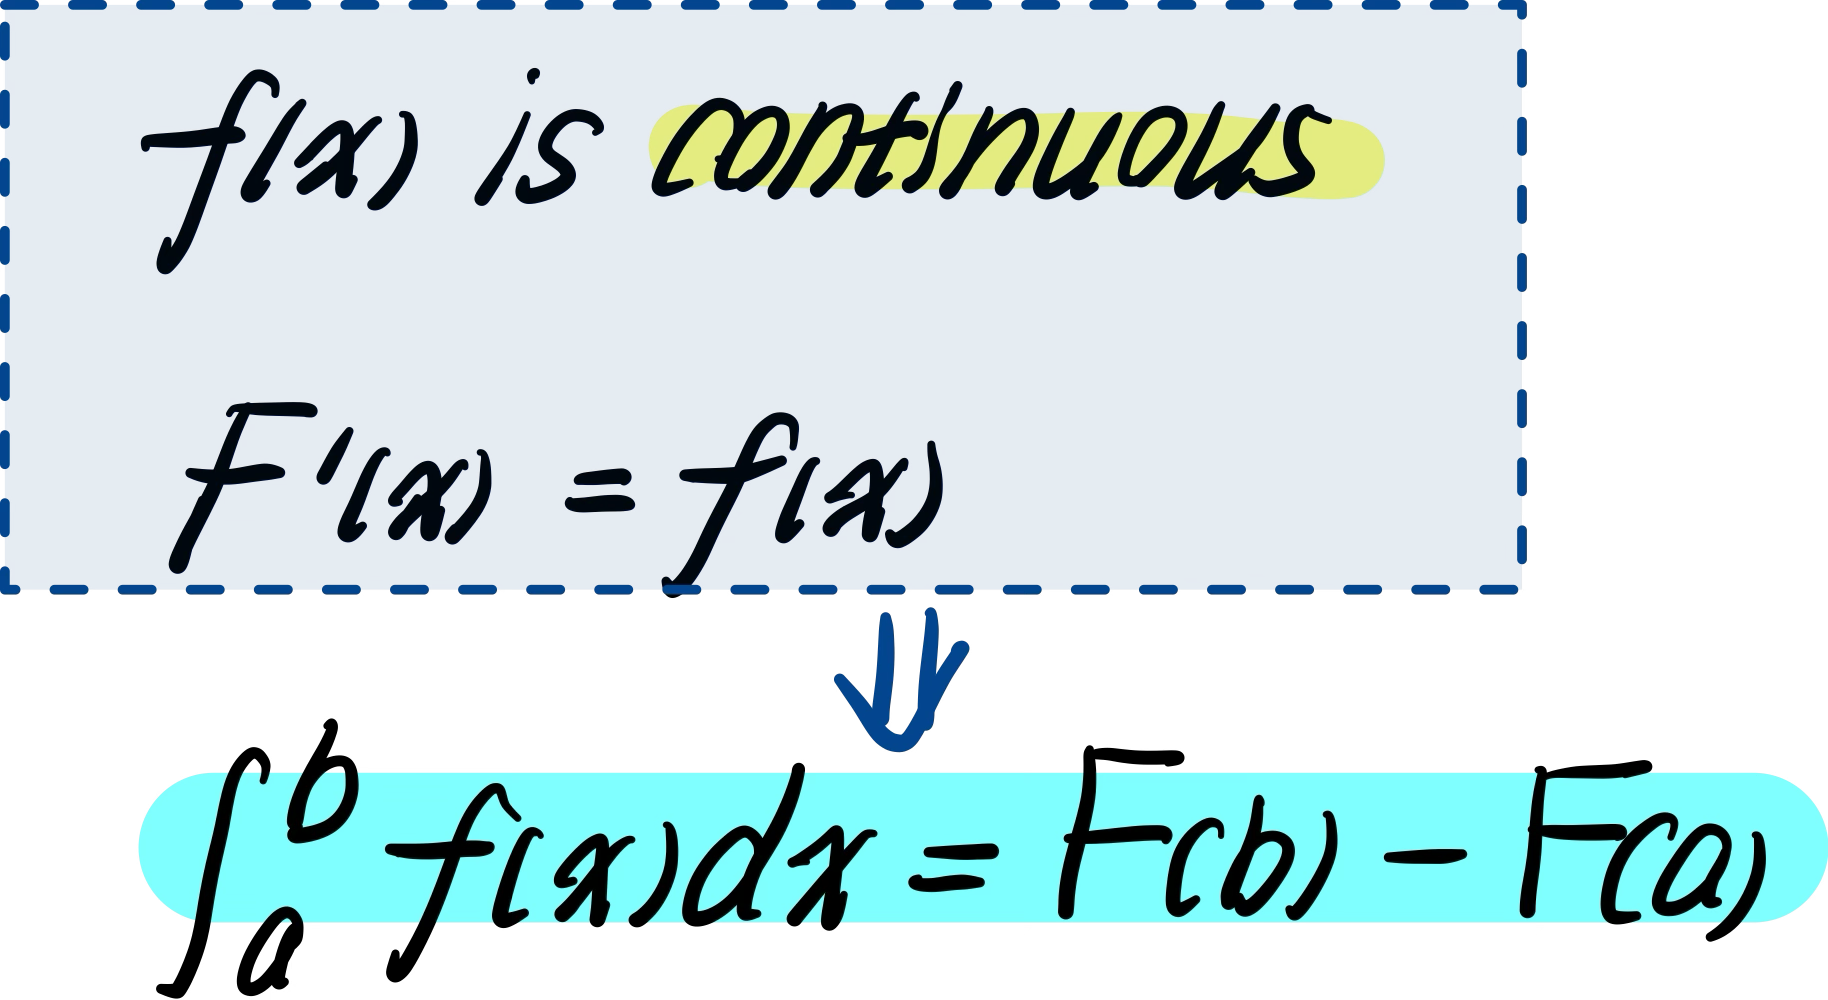 f(x) is continuous
F'(x) = f(x)
⇓
∫_a^b f(x)dx = F(b) - F(a)